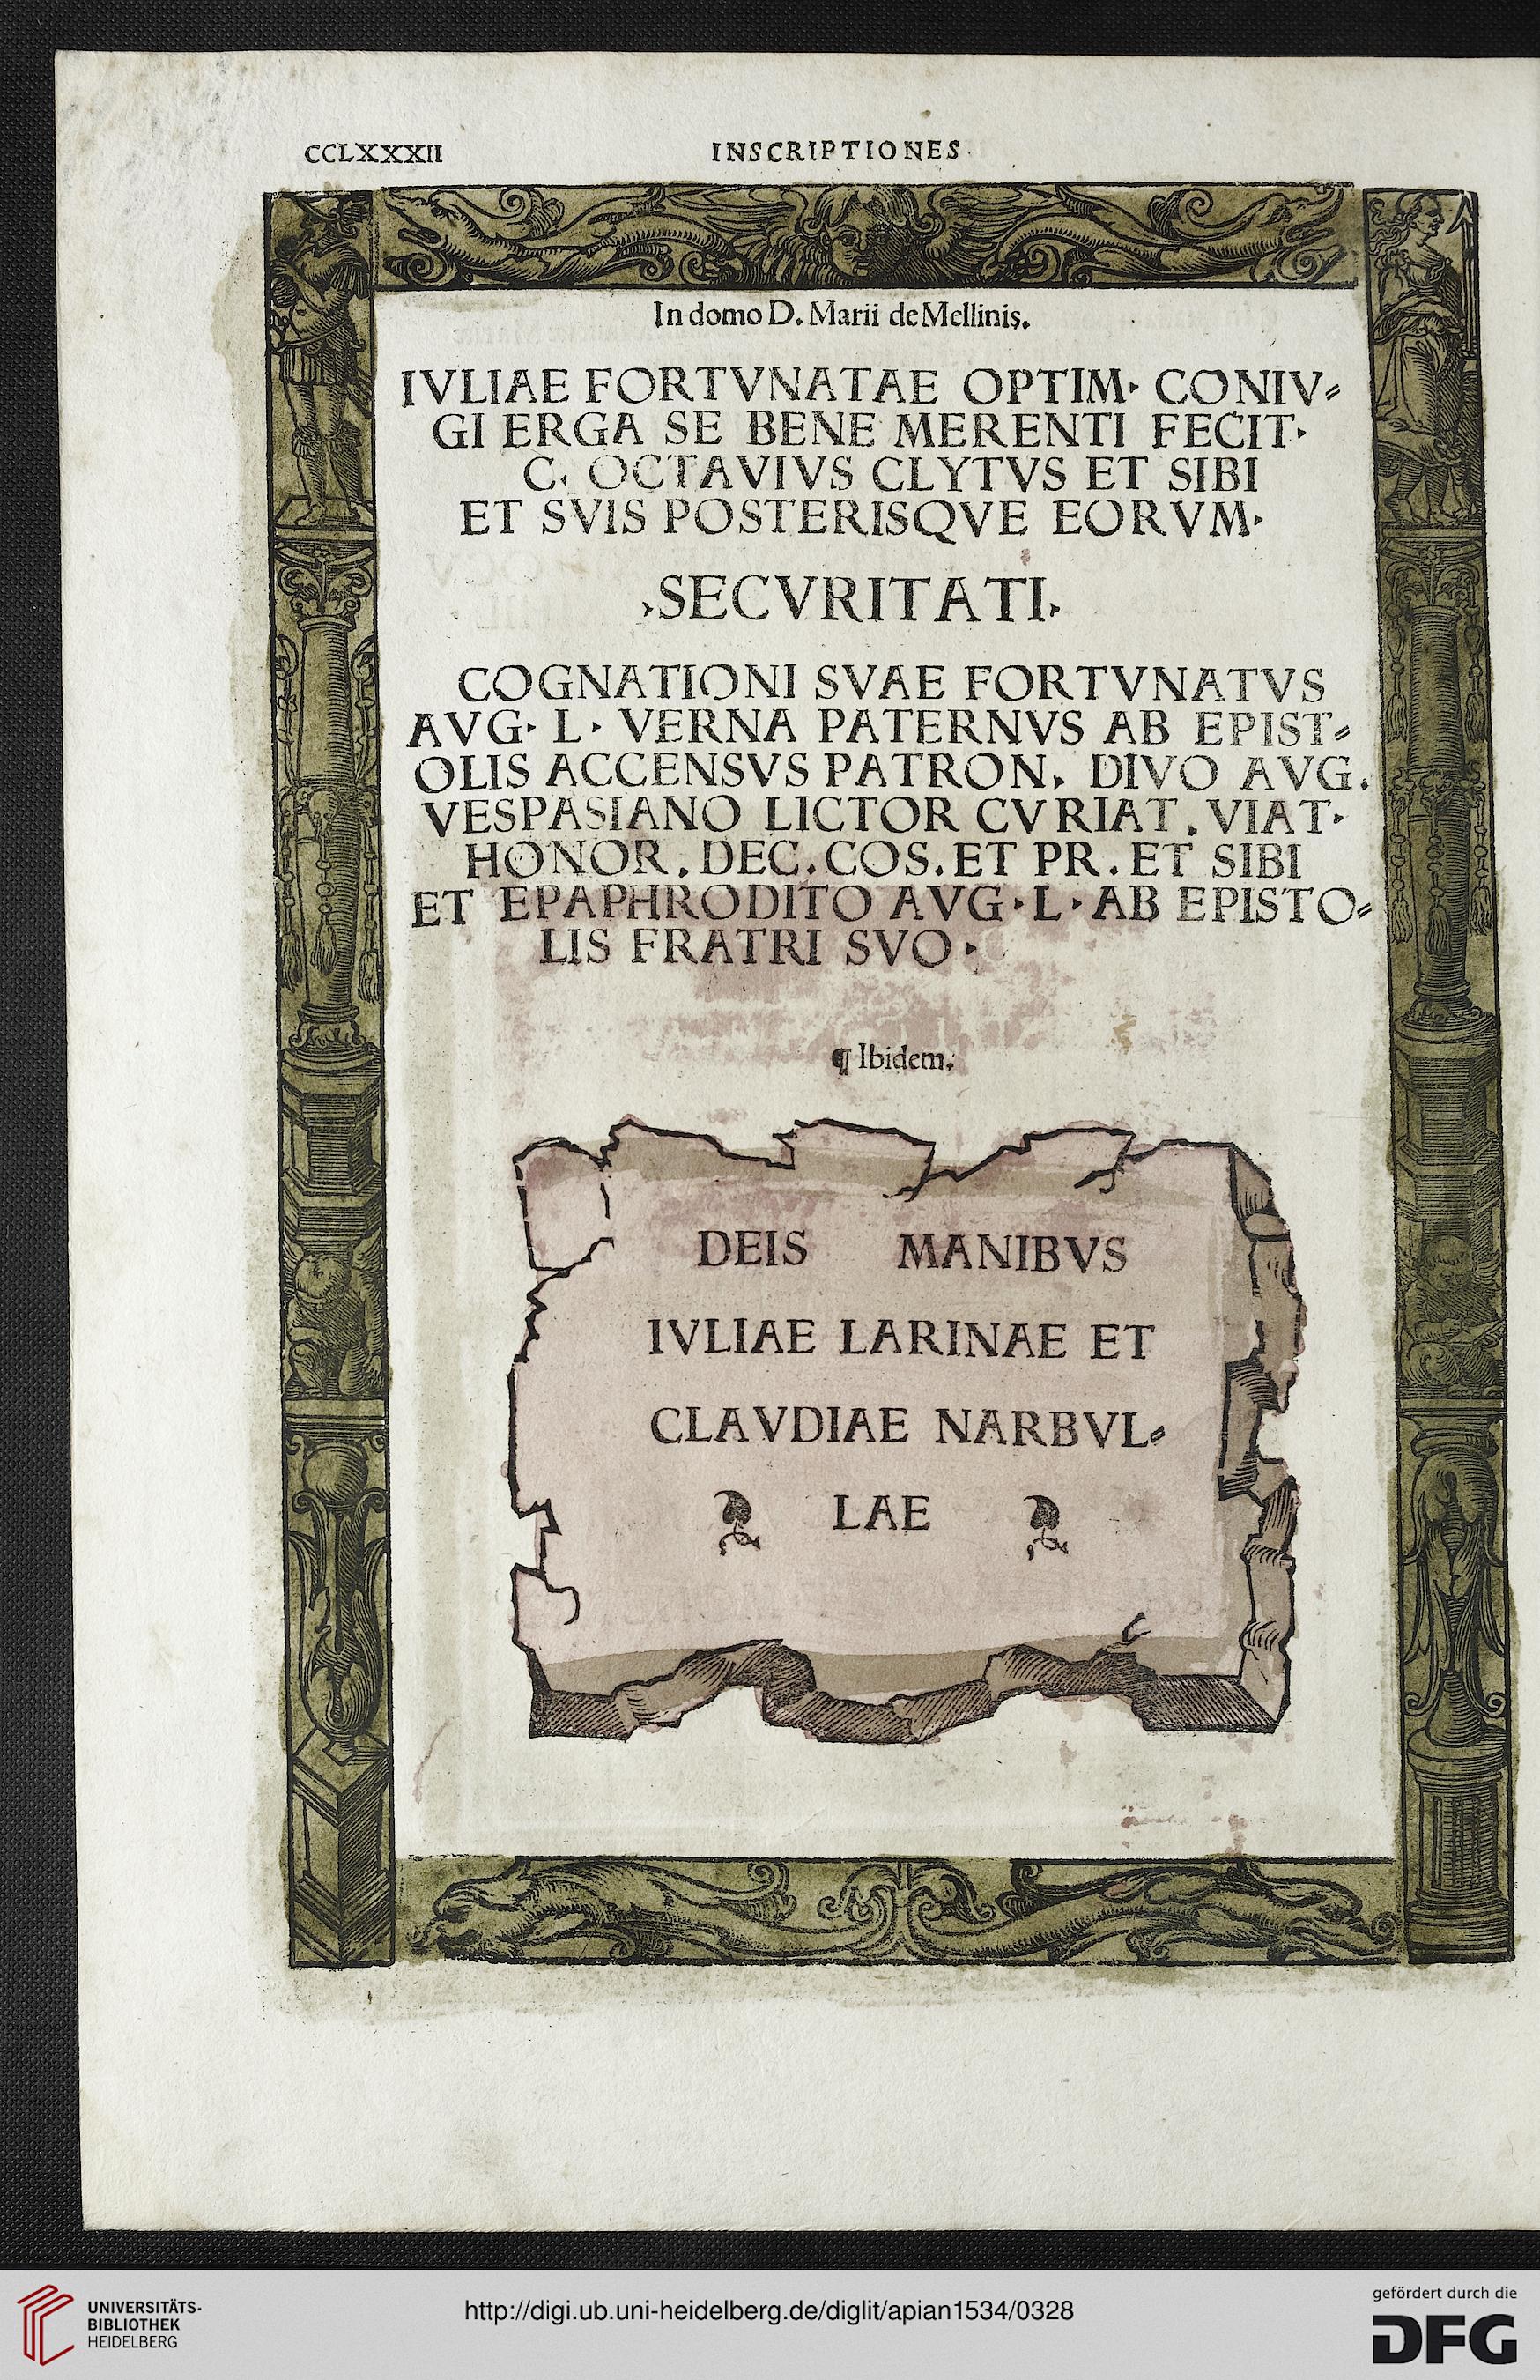 CCLXXXII INSCRIPTIONES
In domo D. Marii de Mellinis.
IVLIAE FORTVNATAE OPTIM· CONIV⸗
GI ERGA SE BENE MERENTI FECIT·
C. OCTAVIVS CLYTVS ET SIBI
ET SVIS POSTERISQVE EORVM·
·SECVRITATI·
COGNATIONI SVAE FORTVNATVS
AVG· L· VERNA PATERNVS AB EPIST⸗
OLIS ACCENSVS PATRON· DIVO AVG.
VESPASIANO LICTOR CVRIAT. VIAT·
HONOR. DEC. COS. ET PR. ET SIBI
ET EPAPHRODITO AVG· L· AB EPISTO⸗
LIS FRATRI SVO·
¶ Ibidem.
DEIS MANIBVS
IVLIAE LARINAE ET
CLAVDIAE NARBVL⸗
LAE
UNIVERSITÄTS-
BIBLIOTHEK
HEIDELBERG
http://digi.ub.uni-heidelberg.de/diglit/apian1534/0328
gefördert durch die
DFG